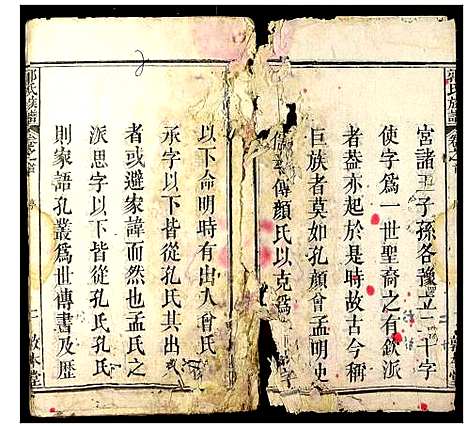 宮諸王子孫各豫立二十字
使字爲一世聖裔之有欽派
者葢亦起於是時故古今稱
巨族者莫如孔顏曾孟明史
傳顏氏以克爲字
以下命明時有出入曾氏
承字以下皆從孔氏其出
者或避家諱而然也孟氏之
派思字以下皆從孔氏孔氏
則家語孔叢爲世傳書及歷
郭氏族譜
卷之首
敦本堂